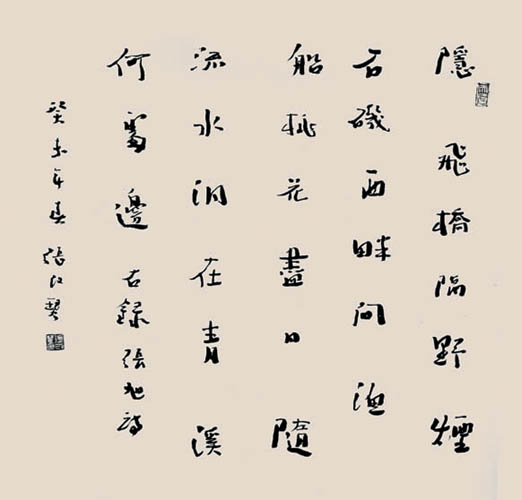 隱飛橋隔野煙
石磯西畔問漁
船桃花盡日隨
流水洞在青溪
何處邊 右錄張旭詩
癸未年夏 張